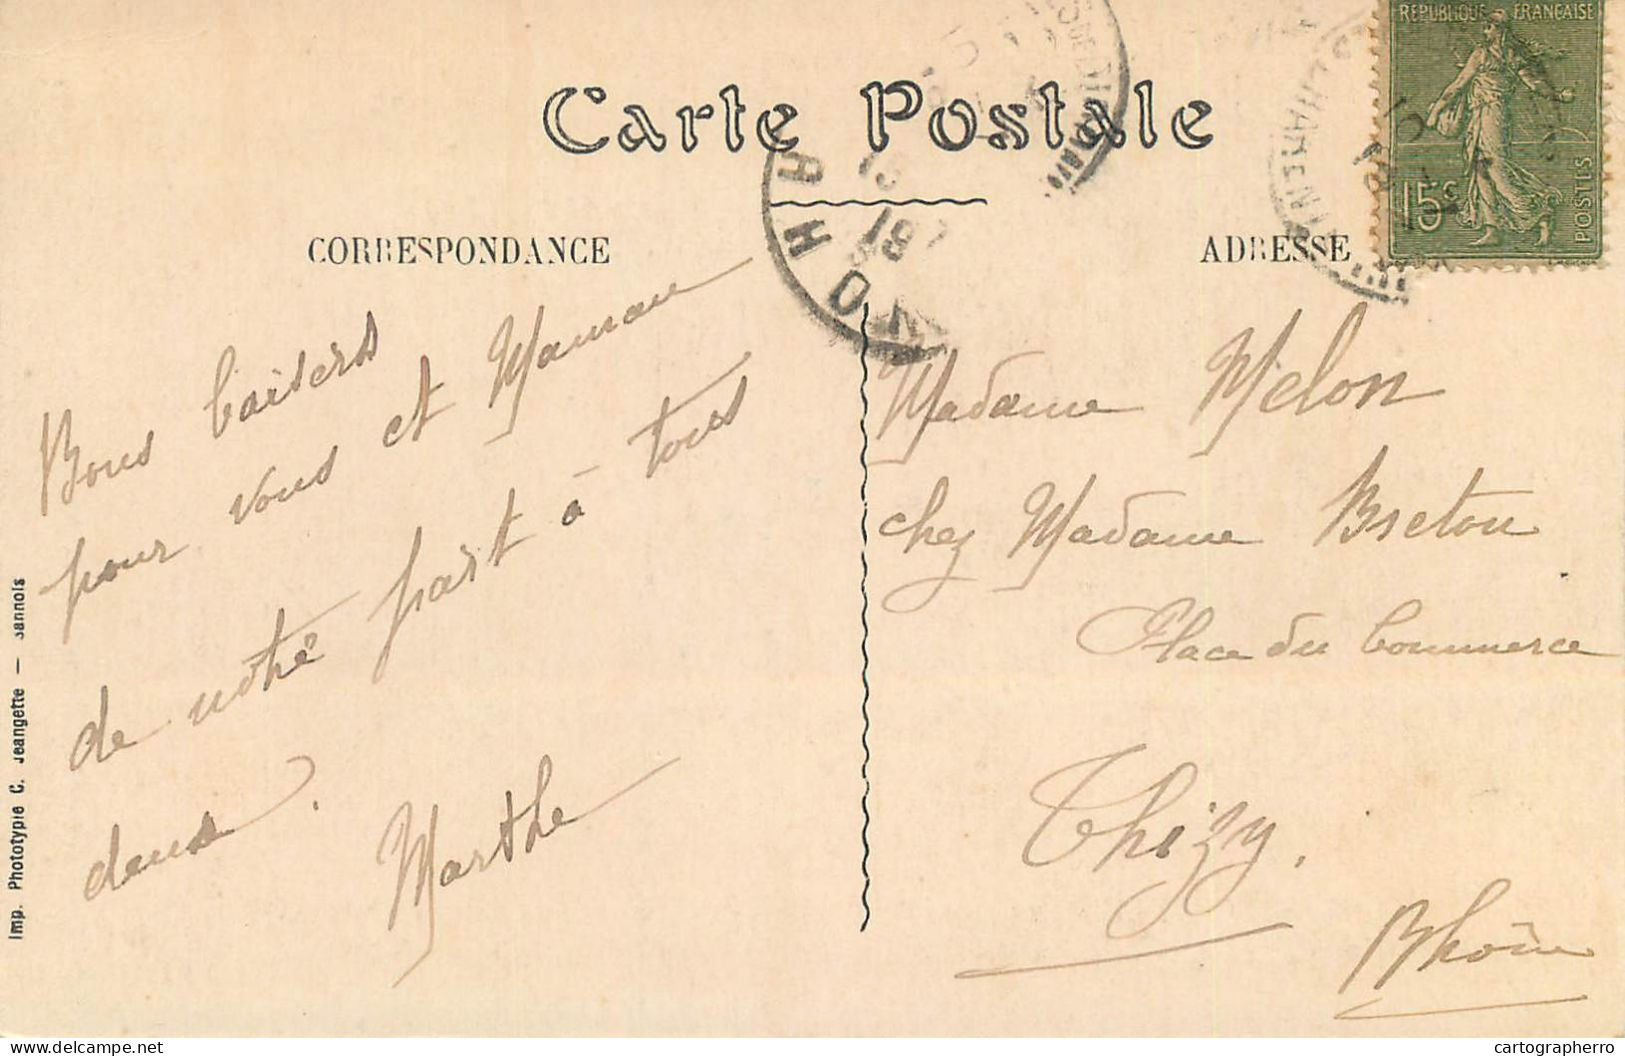 Carte Postale
CORRESPONDANCE
ADRESSE
REPUBLIQUE FRANÇAISE
15c
POSTES
RHON
Bons baisers
pour vous et Maman
de notre part à tous
deux.
Marthe
Madame Melon
chez Madame Breton
Place du Commerce
Thizy.
Rhône
Imp. Phototypie C. Jeangette — Sannois
delcampe.net
cartographerro